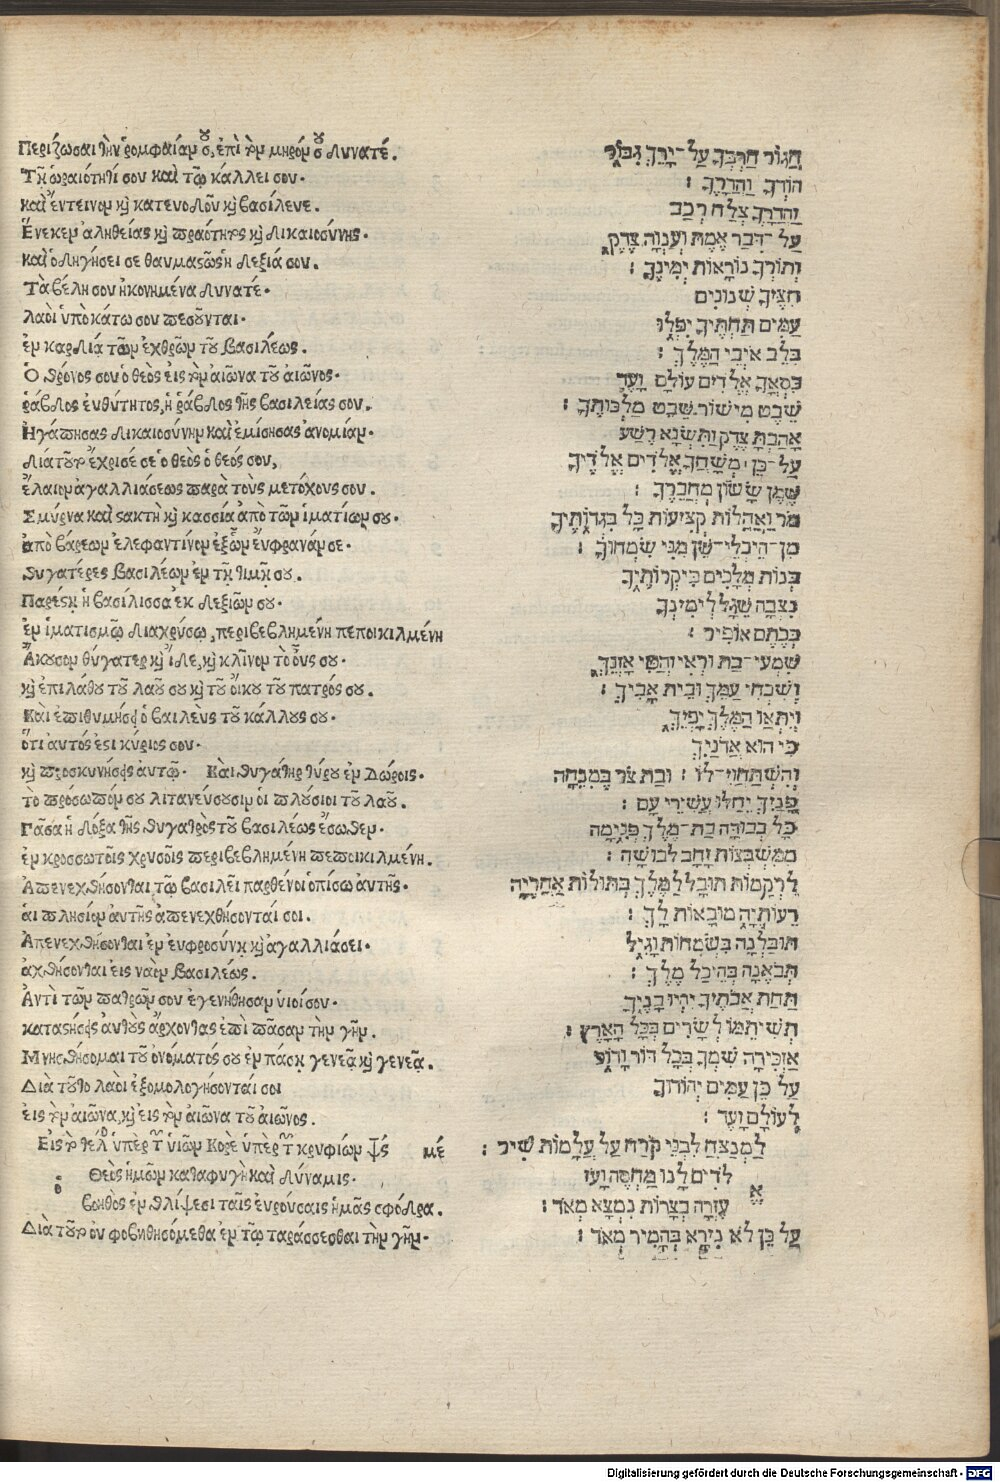 Περίζωσαι τὴν ῥομφαίαν σου, ἐπὶ τὸν μηρόν σου δυνατέ.
Τῇ ὡραιότητί σου καὶ τῷ κάλλει σου·
καὶ ἔντεινον καὶ κατευοδοῦ καὶ βασίλευε.
Ἕνεκεν ἀληθείας καὶ πραότητος καὶ δικαιοσύνης·
καὶ ὁδηγήσει σε θαυμαστῶς ἡ δεξιά σου.
Τὰ βέλη σου ἠκονημένα δυνατέ·
λαοὶ ὑποκάτω σου πεσοῦνται·
ἐν καρδίᾳ τῶν ἐχθρῶν τοῦ βασιλέως.
Ὁ θρόνος σου ὁ θεὸς εἰς τὸν αἰῶνα τοῦ αἰῶνος·
ῥάβδος εὐθύτητος, ἡ ῥάβδος τῆς βασιλείας σου.
Ηγάπησας δικαιοσύνην καὶ ἐμίσησας ἀνομίαν·
διὰ τοῦτο ἔχρισέ σε ὁ θεὸς ὁ θεός σου,
ἔλαιον ἀγαλλιάσεως παρὰ τοὺς μετόχους σου.
Σμύρνα καὶ στακτὴ καὶ κασσία ἀπὸ τῶν ἱματίων σου·
ἀπὸ βάρεων ἐλεφαντίνων ἐξ ὧν ἔυφρανάν σε·
θυγατέρες βασιλέων ἐν τῇ τιμῇ σου.
Παρέστη ἡ βασίλισσα ἐκ δεξιῶν σου·
ἐν ἱματισμῷ διαχρύσῳ, περιβεβλημένη πεποικιλμένη
Ἄκουσον θύγατερ καὶ ἴδε, καὶ κλῖνον τὸ οὖς σου·
καὶ ἐπιλάθου τοῦ λαοῦ σου καὶ τοῦ ὄικου τοῦ πατρός σου.
Καὶ ἐπιθυμήσει ὁ βασιλεὺς τοῦ κάλλους σου·
ὅτι αὐτός ἐστι κύριος σου·
καὶ προσκυνήσεις αὐτῷ· Καὶ θυγάτηρ τύρου ἐν δώροις·
τὸ πρόσωπόν σου λιτανεύσουσιν οἱ πλούσιοι τοῦ λαοῦ.
Πᾶσα ἡ δόξα τῆς θυγατρὸς τοῦ βασιλέως ἔσωθεν·
ἐν κροσσωτοῖς χρυσοῖς περιβεβλημένη πεποικιλμένη.
Ἀπενεχθήσονται τῷ βασιλεῖ παρθένοι ὀπίσω ἀυτῆς·
ἁι πλησίον αυτῆς ἀπενεχθήσονταί σοι.
Ἀπενεχθήσονται ἐν ἐυφροσύνῃ καὶ ἀγαλλιάσει·
ἀχθήσονται εἰς ναὸν βασιλέως.
Ἀντὶ τῶν πατρῶν σου ἐγενήθησαν υἱοί σου·
καταστήσεις ἀυτοὺς ἄρχοντας ἐπὶ πᾶσαν τὴν γῆν.
Μνησθήσομαι τοῦ ὀνόματός σου ἐν πάσῃ γενεᾷ καὶ γενεᾷ.
Διὰ τοῦτο λαοὶ ἐξομολογήσονταί σοι
εἰς τὸν αἰῶνα, καὶ εἰς τὸν αἰῶνα τοῦ αἰῶνος.
Εἰς τὸ τέλος ὑπὲρ τῶν ὑιῶν Κορὲ ὑπὲρ τῶν κρυφίων ψς μέ
ὁ Θεὸς ἡμῶν καταφυγὴ καὶ δύναμις·
βοηθὸς ἐν θλίψεσι ταῖς ἑυρούσαις ἡμᾶς σφόδρα.
Διὰ τοῦτο ὀυ φοβηθησόμεθα ἐν τῷ ταράσσεσθαι τὴν γῆν·
חֲגוֹר חַרְבְּךָ עַל־יָרֵךְ גִּבּוֹר
הוֹדְךָ וַהֲדָרֶךָ :
וַהֲדָרְךָ צְלַח רְכַב
עַל־דְּבַר אֱמֶת וְעַנְוָה צֶדֶק
וְתוֹרְךָ נוֹרָאוֹת יְמִינֶךָ :
חִצֶּיךָ שְׁנוּנִים
עַמִּים תַּחְתֶּיךָ יִפְּלוּ
בְּלֵב אוֹיְבֵי הַמֶּלֶךְ :
כִּסְאֲךָ אֱלֹדִים עוֹלָם וָעֶד
שֵׁבֶט מִישׁוֹר שֵׁבֶט מַלְכוּתֶךָ :
אָהַבְתָּ צֶּדֶק וַתִּשְׂנָא רֶשַׁע
עַל־כֵּן מְשָׁחֲךָ אֱלֹדִים אֱלֹדֶיךָ
שֶׁמֶן שָׂשׂוֹן מֵחֲבֵרֶךָ :
מֹר וַאֲהָלוֹת קְצִיעוֹת כָּל בִּגְדוֹתֶיךָ
מִן־הֵיכְלֵי־שֵׁן מִנִּי שִׂמְּחוּךָ :
בְּנוֹת מְלָכִים בִּיקְּרוֹתֶיךָ
נִצְּבָה שֵׁגַל לִימִינְךָ
בְּכֶתֶם אוֹפִיר :
שִׁמְעִי־בַת וּרְאִי וְהַטִּי אָזְנֵךְ
וְשִׁכְחִי עַמֵּךְ וּבֵית אָבִיךְ :
וְיִתְאָו הַמֶּלֶךְ יָפְיֵךְ
כִּי הוּא אֲדֹנַיִךְ
וְהִשְׁתַּחֲוִי־לוֹ : וּבַת צֹר בְּמִנְחָה
פָּנַיִךְ יְחַלּוּ עֲשִׁירֵי עָם :
כָּל כְּבוּדָּה בַת־מֶלֶךְ פְּנִימָה
מִמִּשְׁבְּצוֹת זָהָב לְבוּשָׁהּ :
לִרְקָמוֹת תּוּבַל לַמֶּלֶךְ בְּתוּלוֹת אַחֲרֶיהָ
רֵעוֹתֶיהָ מוּבָאוֹת לָךְ :
תּוּבַלְנָה בִּשְׂמָחוֹת וָגִיל
תְּבֹאֶינָה בְּהֵיכַל מֶלֶךְ :
תַּחַת אֲבֹתֶיךָ יִהְיוּ בָנֶיךָ
תְּשִׁיתֵמוֹ לְשָׂרִים בְּכָל הָאָרֶץ :
אַזְכִּירָה שִׁמְךָ בְּכָל דּוֹר וָדוֹר
עַל כֵּן עַמִּים יְהוֹדוּךָ
לְעוֹלָם וָעֶד :
לַמְנַצֵּחַ לִבְנֵי קֹרַח עַל עֲלָמוֹת שִׁיר :
אֱלֹדִים לָנוּ מַחְסֶה וָעֹז
עֶזְרָה בְצָרוֹת נִמְצָא מְאֹד :
עַל כֵּן לֹא נִירָא בְּהָמִיר מְאֹד :
Digitalisierung gefördert durch die Deutsche Forschungsgemeinschaft - DFG